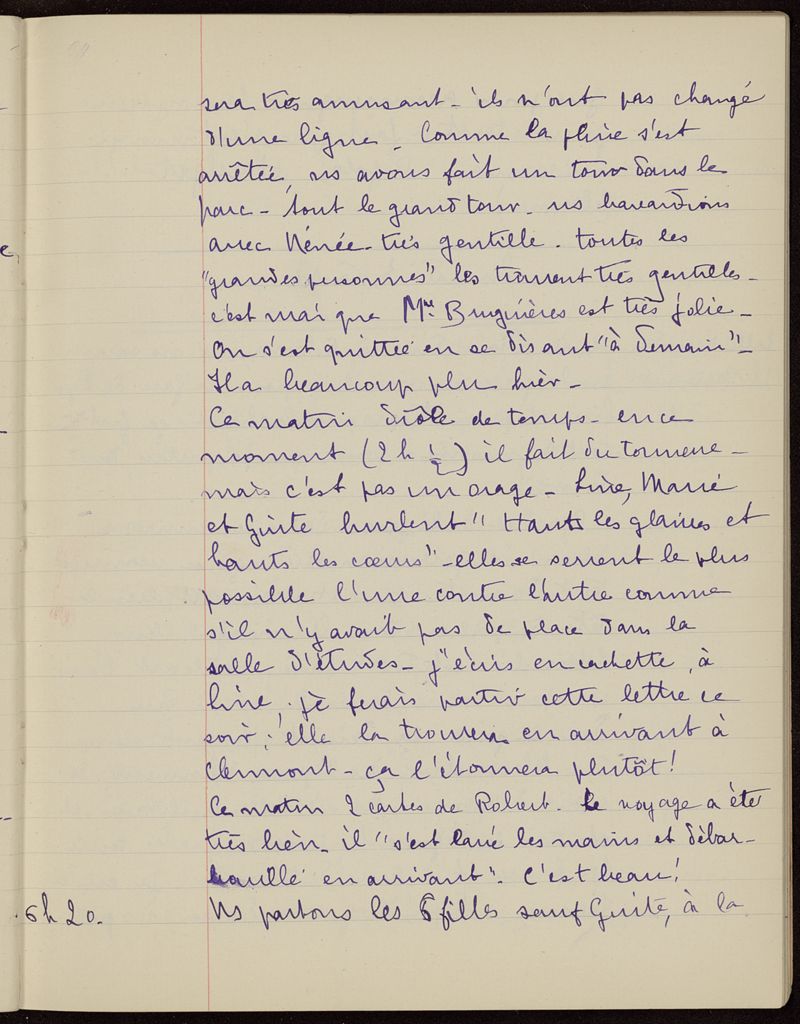 sera très amusant - ils n'ont pas changé
d'une ligne - Comme la pluie s'est
arrêtée, ns avons fait un tour dans le
parc - tout le grand tour. ns bavardions
avec Nénée - très gentille. toutes les
"grandes personnes" les trouvent très gentilles -
c'est vrai que Mme Bruguières est très jolie -
On s'est quittée en se disant "à demain" -
Il a beaucoup plu hier -
Ce matin drôle de temps - en ce
moment (2 h ½) il fait du tonnerre -
mais c'est pas un orage - Line, Marie
et Guite hurlent "Hauts les glaives et
hauts les cœurs" - elles se serrent le plus
possible l'une contre l'autre comme
s'il n'y avait pas de place dans la
salle d'études - j'écris en cachette, à
Line, je ferais partir cette lettre ce
soir, elle la trouvera en arrivant à
Clermont - ça l'étonnera plutôt!
Ce matin 2 cartes de Robert. le voyage a été
très bien - il "s'est lavé les mains et débar-
bouillé en arrivant". C'est beau!
6h20. Ns partons les 6 filles sauf Guite, à la